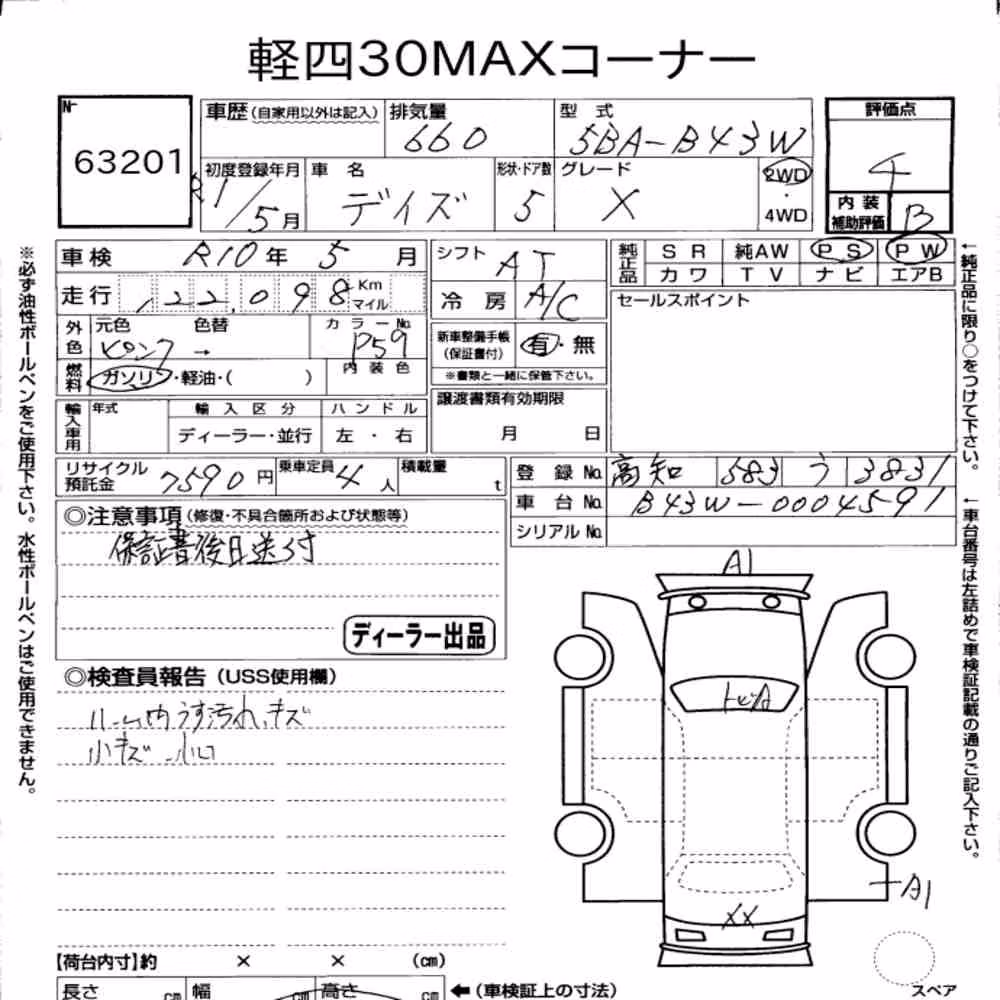 軽四30MAXコーナー
No
63201
車歴(自家用以外は記入) 排気量 660 型式 5BA-B43W
初度登録年月 R1/5月 車名 デイズ 形状・ドア数 5 グレード X 2WD・4WD
評価点 4
内装補助評価 B
車検 R10年 5月
走行 22,098 Km マイル
外色 元色 ピンク 色替 → カラーNo. P59
内装色
燃料 ガソリン・軽油・( )
輸入車用 年式 輸入区分 ディーラー・並行 ハンドル 左・右
シフト AT
冷房 A/C
新車整備手帳(保証書付) 有・無
※書類と一緒に保管下さい。
譲渡書類有効期限
月 日
純正品 SR 純AW PS PW
カワ TV ナビ エアB
セールスポイント
リサイクル預託金 7590円 乗車定員 4人 積載量 t
登録No. 高知 583 う 3831
車台No. B43W-0004591
シリアルNo.
◎注意事項(修復・不具合箇所および状態等)
保証書後日送付
ディーラー出品
◎検査員報告(USS使用欄)
ルーム内うす汚れ、キズ
小キズ 小凹
A1
トビA
A1
XX
スペア
【荷台内寸】約 × × (cm)
長さ cm 幅 cm 高さ cm ←(車検証上の寸法)
※必ず油性ボールペンをご使用下さい。水性ボールペンはご使用できません。
←純正品に限り○をつけて下さい。
←車台番号は左詰めで車検証記載の通りご記入下さい。